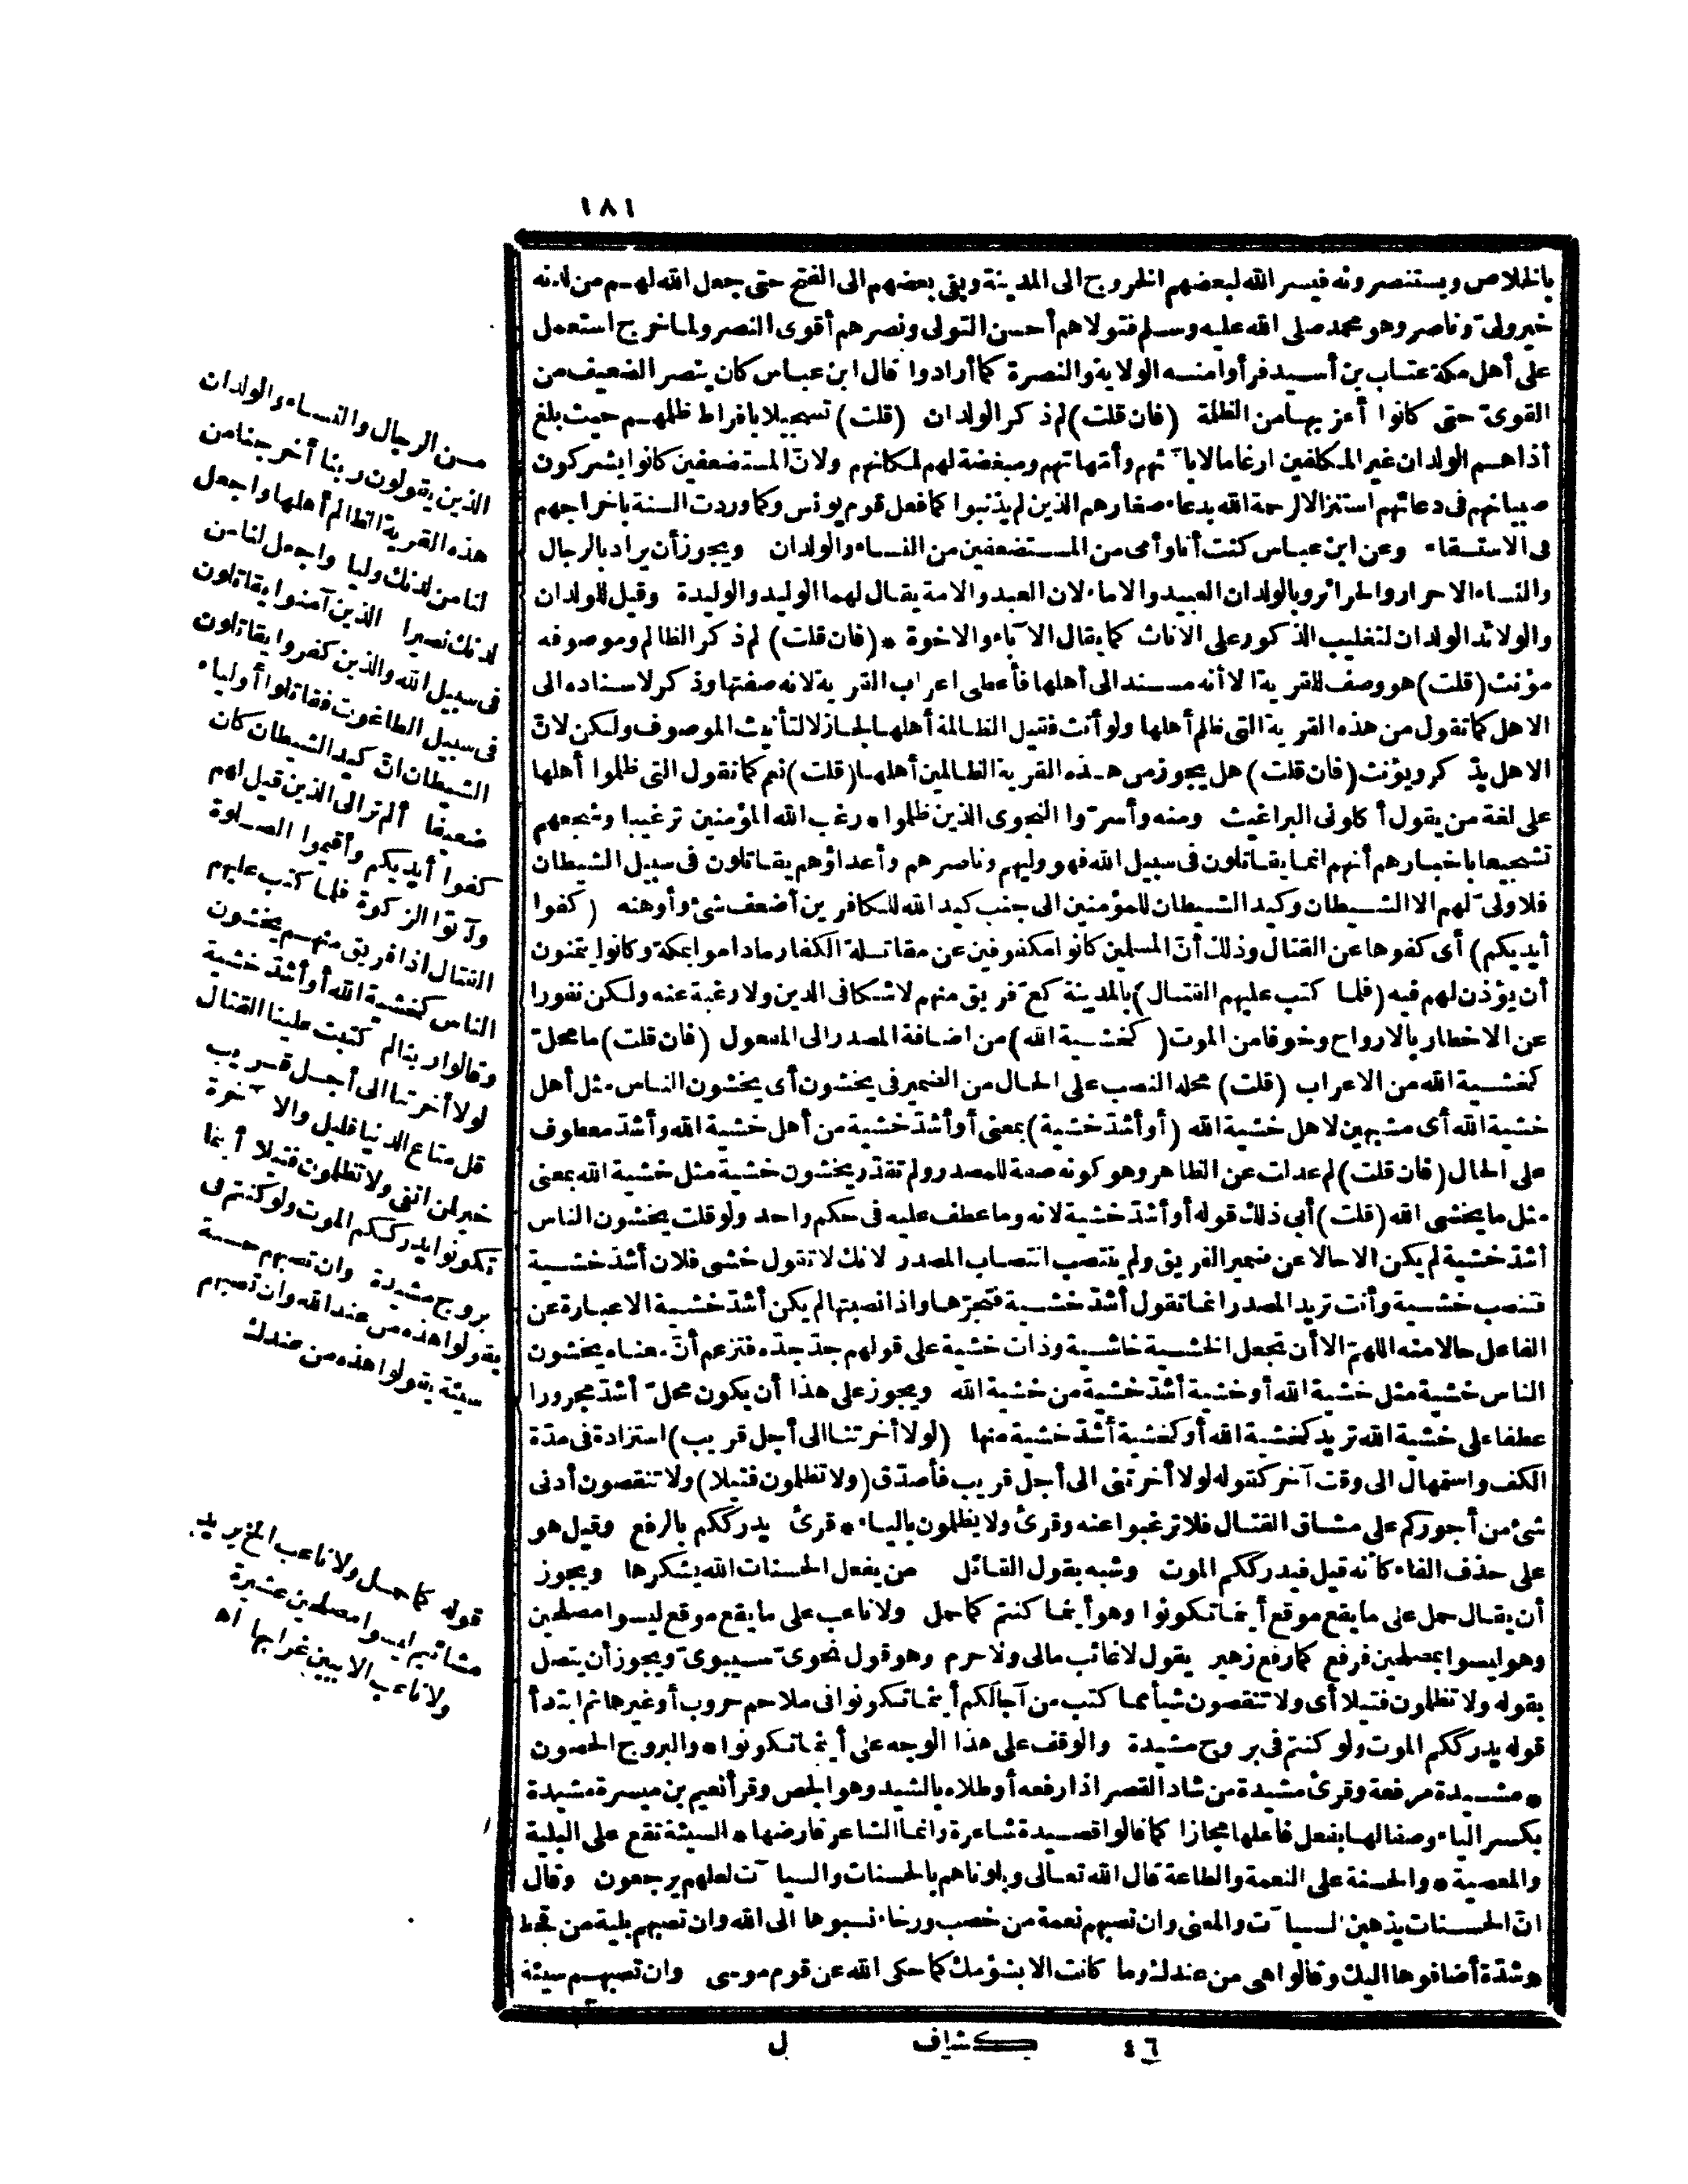 ١٨١
بالخلاص ويستنصرونه فيسر الله لبعضهم الخروج الى المدينة وبقى بعضهم الى الفتح حتى جعل الله لهم من لدنه
خير ولىّ وناصر وهو محمد صلى الله عليه وسلم فتولاهم أحسن التولى ونصرهم أقوى النصر ولما خرج استعمل
على أهل مكة عتاب بن أسيد فرأوا منه الولاية والنصرة كما أرادوا قال ابن عباس كان ينصر الضعيف من
القوىّ حتى كانوا أعز بها من الظلمة (فان قلت) لم ذكر الولدان (قلت) تسجيلا بافراط ظلمهم حيث بلغ
أذاهم الولدان غير المكلفين ارغاما لآبائهم وأمهاتهم ومبغضة لهم لمكانهم ولانّ المستضعفين كانوا يشركون
صبيانهم فى دعائهم استنزالا لرحمة الله بدعاء صغارهم الذين لم يذنبوا كما فعل قوم يونس وكما وردت السنة باخراجهم
فى الاستسقاء وعن ابن عباس كنت أنا وأمى من المستضعفين من النساء والولدان ويجوز أن يراد بالرجال
والنساء الاحرار والحرائر وبالولدان العبيد والاماء لان العبد والامة يقال لهما الوليد والوليدة وقيل للولدان
والولائد الولدان لتغليب الذكور على الاناث كما يقال الآباء والاخوة * (فان قلت) لم ذكر الظالم وموصوفه
مؤنث (قلت) هو وصف للقرية الا أنه مسند الى أهلها فأعطى اعراب القرية لانه صفتها وذكر لاسناده الى
الاهل كما تقول من هذه القرية التى ظلم أهلها ولو أنث فقيل الظالمة أهلها لجاز لا لتأنيث الموصوف ولكن لانّ
الاهل يذكر ويؤنث (فان قلت) هل يجوز من هذه القرية الظالمين أهلها (قلت) نعم كما تقول التى ظلموا أهلها
على لغة من يقول أكلونى البراغيث ومنه وأسرّوا النجوى الذين ظلموا * رغب الله المؤمنين ترغيبا وشجعهم
تشجيعا باخبارهم أنهم انما يقاتلون فى سبيل الله فهو وليهم وناصرهم وأعداؤهم يقاتلون فى سبيل الشيطان
فلا ولىّ لهم الا الشيطان وكيد الشيطان للمؤمنين الى جنب كيد الله للكافرين أضعف شئ وأوهنه (كفوا
أيديكم) أى كفوها عن القتال وذلك أنّ المسلمين كانوا مكفوفين عن مقاتلة الكفار ماداموا بمكة وكانوا يتمنون
أن يؤذن لهم فيه (فلما كتب عليهم القتال) بالمدينة كعّ فريق منهم لا شكا فى الدين ولا رغبة عنه ولكن نفورا
عن الاخطار بالارواح وخوفا من الموت (كخشية الله) من اضافة المصدر الى المفعول (فان قلت) ما محلّ
كخشية الله من الاعراب (قلت) محله النصب على الحال من الضمير فى يخشون أى يخشون الناس مثل أهل
خشية الله أى مشبهين لاهل خشية الله (أو أشدّ خشية) بمعنى أو أشدّ خشية من أهل خشية الله وأشدّ معطوف
على الحال (فان قلت) لم عدلت عن الظاهر وهو كونه صفة للمصدر ولم تقدّر يخشون خشية مثل خشية الله بمعنى
مثل ما يخشى الله (قلت) أبى ذلك قوله أو أشدّ خشية لانه وما عطف عليه فى حكم واحد ولو قلت يخشون الناس
أشدّ خشية لم يكن الا حالا عن ضمير الفريق ولم ينتصب انتصاب المصدر لانك لا تقول خشى فلان أشدّ خشية
فتنصب خشية وأنت تريد المصدر انما تقول أشدّ خشية فتجرّها واذا نصبتها لم يكن أشدّ خشية الا عبارة عن
الفاعل حالا منه اللهمّ الا أن تجعل الخشية خاشية وذات خشية على قولهم جدّ جدّه فتزعم أنّ معناه يخشون
الناس خشية مثل خشية الله أو خشية أشدّ خشية من خشية الله ويجوز على هذا أن يكون محلّ أشدّ مجرورا
عطفا على خشية الله تريد كخشية الله أو كخشية أشدّ خشية منها (لولا أخرتنا الى أجل قريب) استزادة فى مدّة
الكف واستمهال الى وقت آخر كقوله لولا أخرتنى الى أجل قريب فأصدّق (ولا تظلمون فتيلا) ولا تنقصون أدنى
شئ من أجوركم على مشاق القتال فلا ترغبوا عنه وقرئ ولا يظلمون بالياء * قرئ يدرككم بالرفع وقيل هو
على حذف الفاء كأنه قيل فيدرككم الموت وشبه بقول القائل من يفعل الحسنات الله يشكرها ويجوز
أن يقال حمل على ما يقع موقع أينما تكونوا وهو أينما كنتم كما حمل ولا ناعب على ما يقع موقع ليسوا مصلحين
وهو ليسوا بمصلحين فرفع كما رفع زهير يقول لا غائب مالى ولا حرم وهو قول نحوىّ سيبوىّ ويجوز أن يتصل
بقوله ولا تظلمون فتيلا أى ولا تنقصون شيأ مما كتب من آجالكم أينما تكونوا فى ملاحم حروب أو غيرها ثم ابتدأ
قوله يدرككم الموت ولو كنتم فى بروج مشيدة والوقف على هذا الوجه على أينما تكونوا * والبروج الحصون
* مشيدة مرفعة وقرئ مشيدة من شاد القصر اذا رفعه أو طلاه بالشيد وهو الجص وقرأ نعيم بن ميسرة مشيدة
بكسر الياء وصفا لها بفعل فاعلها مجازا كما قالوا قصيدة شاعرة وانما الشاعر قارضها * السيئة تقع على البلية
والمعصية * والحسنة على النعمة والطاعة قال الله تعالى وبلوناهم بالحسنات والسيآت لعلهم يرجعون وقال
انّ الحسنات يذهبن السيآت والمعنى وان تصبهم نعمة من خصب ورخاء نسبوها الى الله وان تصبهم بلية من قحط
وشدّة أضافوها اليك وقالوا هى من عندك وما كانت الا بشؤمك كما حكى الله عن قوم موسى وان تصبهم سيئة
من الرجال والنساء والولدان
الذين يقولون ربنا أخرجنا من
هذه القرية الظالم أهلها واجعل
لنا من لدنك وليا واجعل لنا من
لدنك نصيرا الذين آمنوا يقاتلون
فى سبيل الله والذين كفروا يقاتلون
فى سبيل الطاغوت فقاتلوا أولياء
الشيطان انّ كيد الشيطان كان
ضعيفا ألم تر الى الذين قيل لهم
كفوا أيديكم وأقيموا الصلوة
وآتوا الزكوة فلما كتب عليهم
القتال اذا فريق منهم يخشون
الناس كخشية الله أو أشدّ خشية
وقالوا ربنا لم كتبت علينا القتال
لولا أخرتنا الى أجل قريب
قل متاع الدنيا قليل والآخرة
خير لمن اتقى ولا تظلمون فتيلا أينما
تكونوا يدرككم الموت ولو كنتم فى
بروج مشيدة وان تصبهم حسنة
يقولوا هذه من عند الله وان تصبهم
سيئة يقولوا هذه من عندك
قوله كما حمل ولا ناعب الخ يريد
مشائيم ليسوا مصلحين عشيرة
ولا ناعب الا ببين غرابها اه
٤٦ كشاف ل